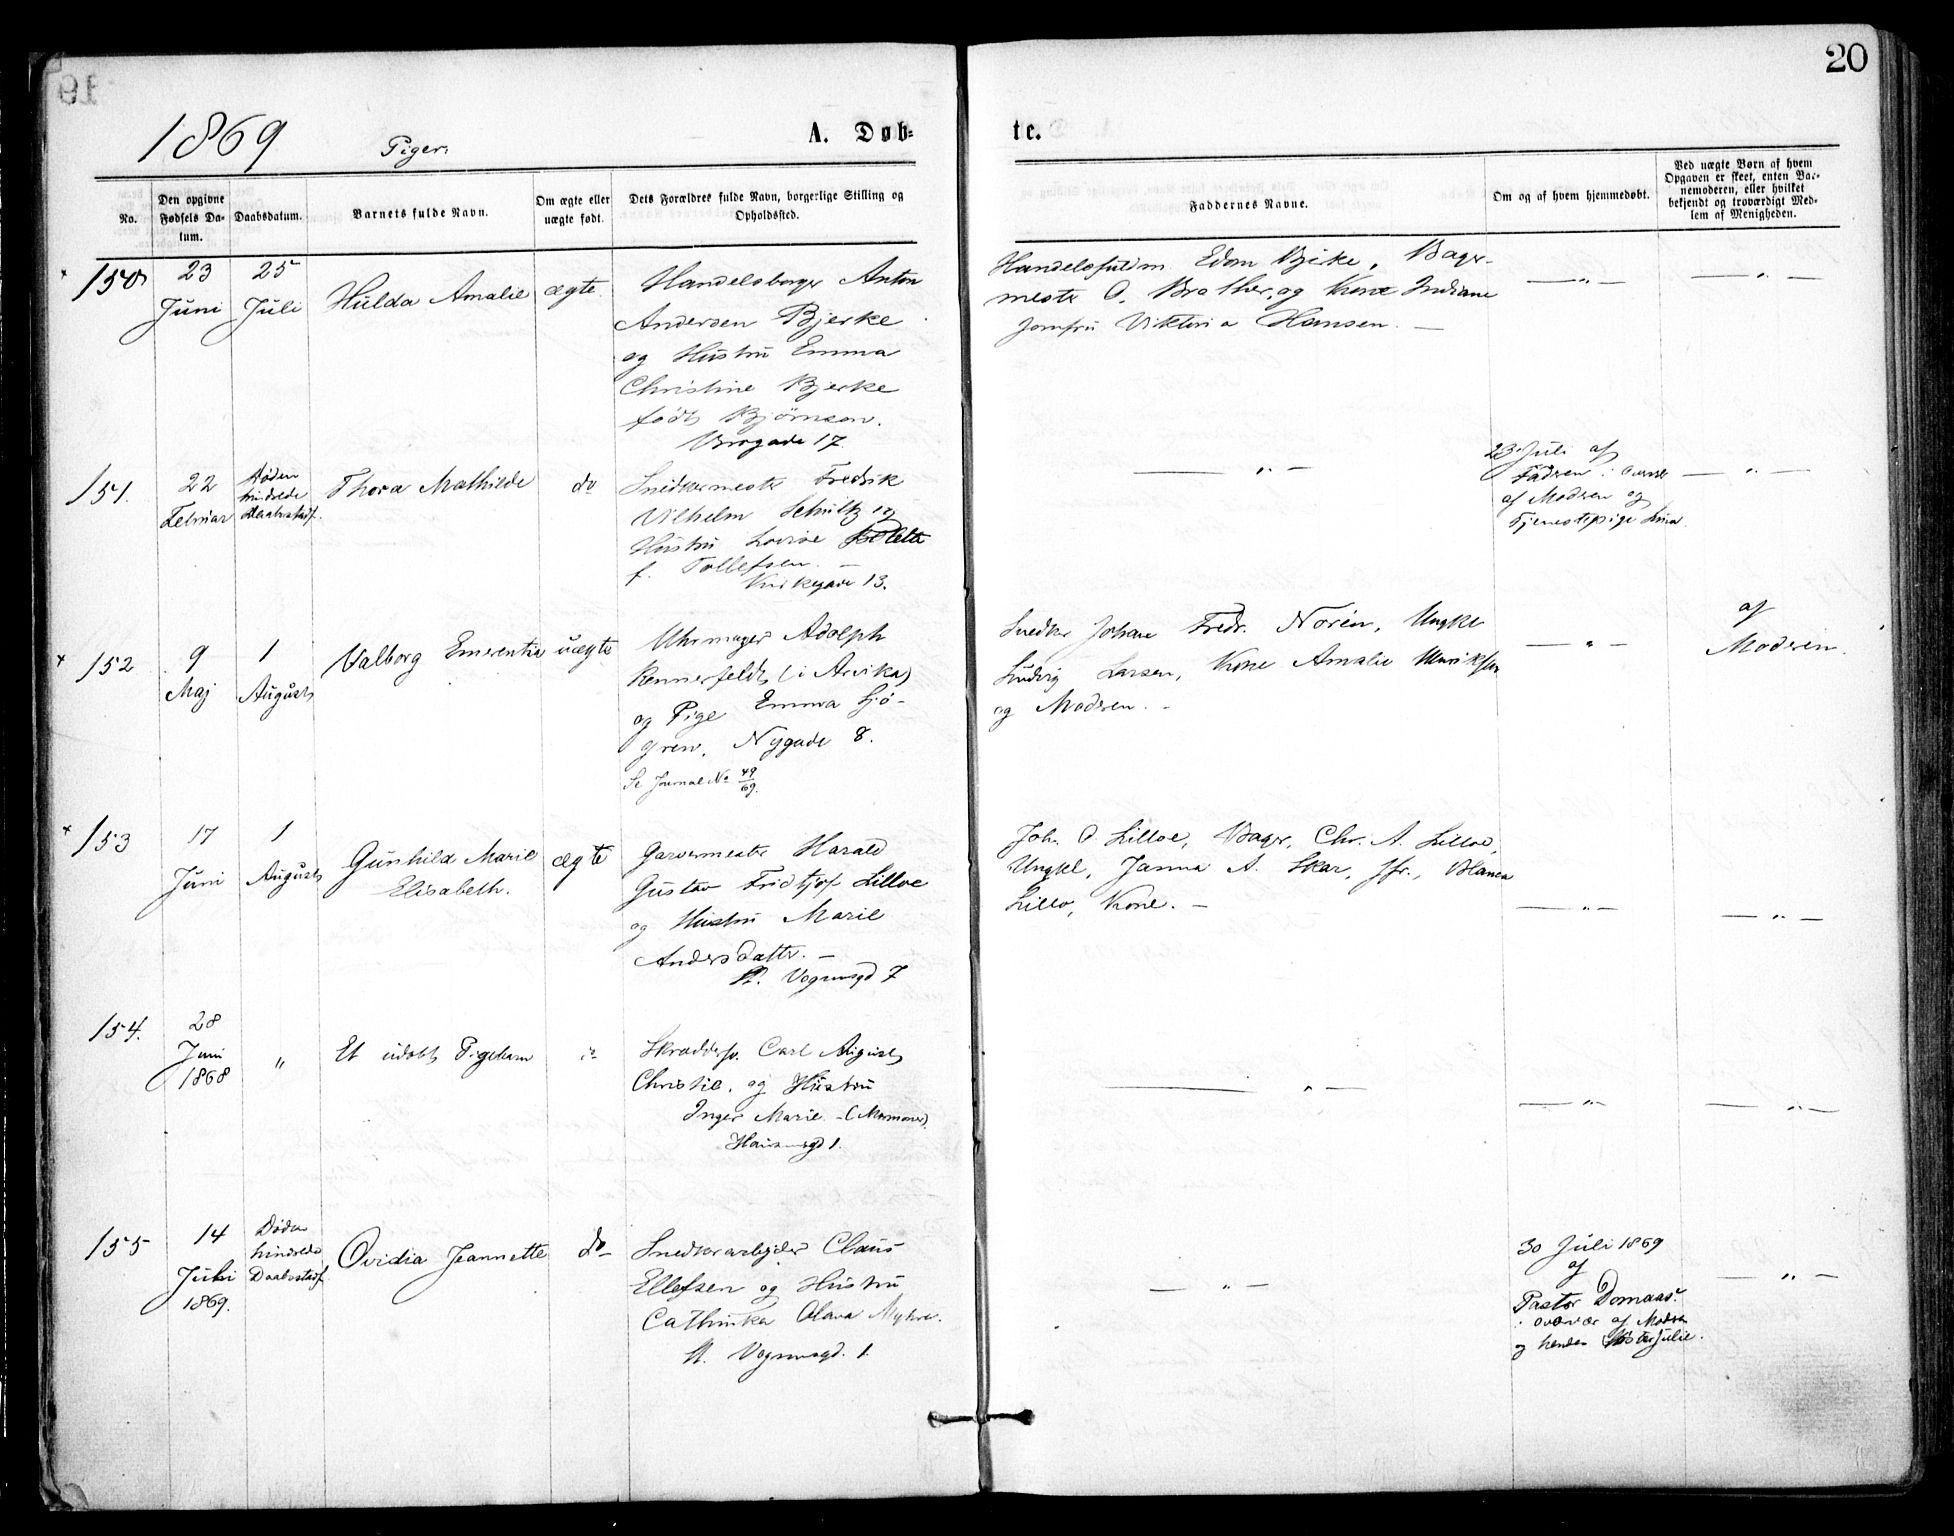 19
20
1869
Piger.
A. Døb-
te.
No.
Den opgivne
Fødsels Da-
tum.
Daabsdatum.
Barnets fulde Navn.
Om ægte eller
uægte født.
Dets Forældres fulde Navn, borgerlige Stilling og
Opholdssted.
Faddernes Navne.
Om og af hvem hjemmedøbt.
Ved uægte Børn af hvem
Opgaven er skeet, enten Bar-
nemoderen, eller hvilket
bekjendt og troværdigt Med-
lem af Menigheden.
150
23
Juni
25
Juli
Hulda Amalie
ægte
Handelsborger Anton
Andersen Bjerke
og Hustru Emma
Christine Bjerke
født Bjørnson.
Brogade 17.
Edom Bjeke, Bager-
mester O. Brather, og Kone Indiane
Jomfru Viktoria Hansen. —
— " —
— " —
151.
22
Februar
Døden
hindrede
Daabsstadf.
Thora Mathilde
do
Snedkermester Fredrik
Vilhelm Schultz og
Hustru Lovise
f. Tollefsen. —
Kirkegade 13.
— " —
23 Juli af
Fadren i Overvær
af Modren og
Tjenestepige Lina.
— " —
152
9
Maj
1
August
Valborg Emerentia
uægte
Uhrmager Adolph
Rennerfeldt (i Arvika)
og Pige Emma Sjö-
gren, Nygade 8.
Se Journal No 49/69.
Snedker Johan Fredr. Norén, Ungkl
Ludvig Larsen, Kone Amalie Henriksen
og Modren. -
— " —
af
Moderen.
153
17
Juni
1
August
Gunhild Marie
Elisabeth.
ægte
Garvermester Harald
Gustav Fridtjof Lilloe
og Hustru Marie
Andersdatter. —
St. Vognmgd 7
Joh. O. Lilloe, Bager, Chr. A. Lilloe,
Ungkl, Janna A. Skar, Jfr., Blanca
Lillo, Kone. —
— " —
— " —
154.
28
Juni
1868
"
Et udøbt Pigebarn
Skræddersv. Carl August
Christie, og Hustru
Inger Marie - (Mormoner).
— " —
— " —
— " —
155
14
Juli
1869.
Døden
hindrede
Daabsstadf.
Ovidia Jeannette
do
Snedkerarbejder Claus
Ellefsen og Hustru
Cathinka Olava Myhre.
St. Vognmgd. 1.
— " —
30 Juli 1869
af
Pastor Domaas
i overvær af Modren
og hendes Søster Julie.
— " —